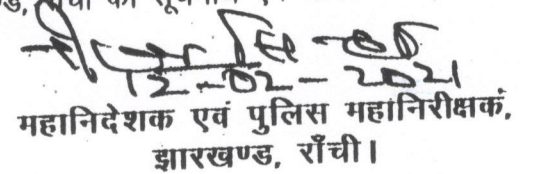 की सूचना
12-02-2021
महानिदेशक एवं पुलिस महानिरीक्षक,
झारखण्ड, राँची।